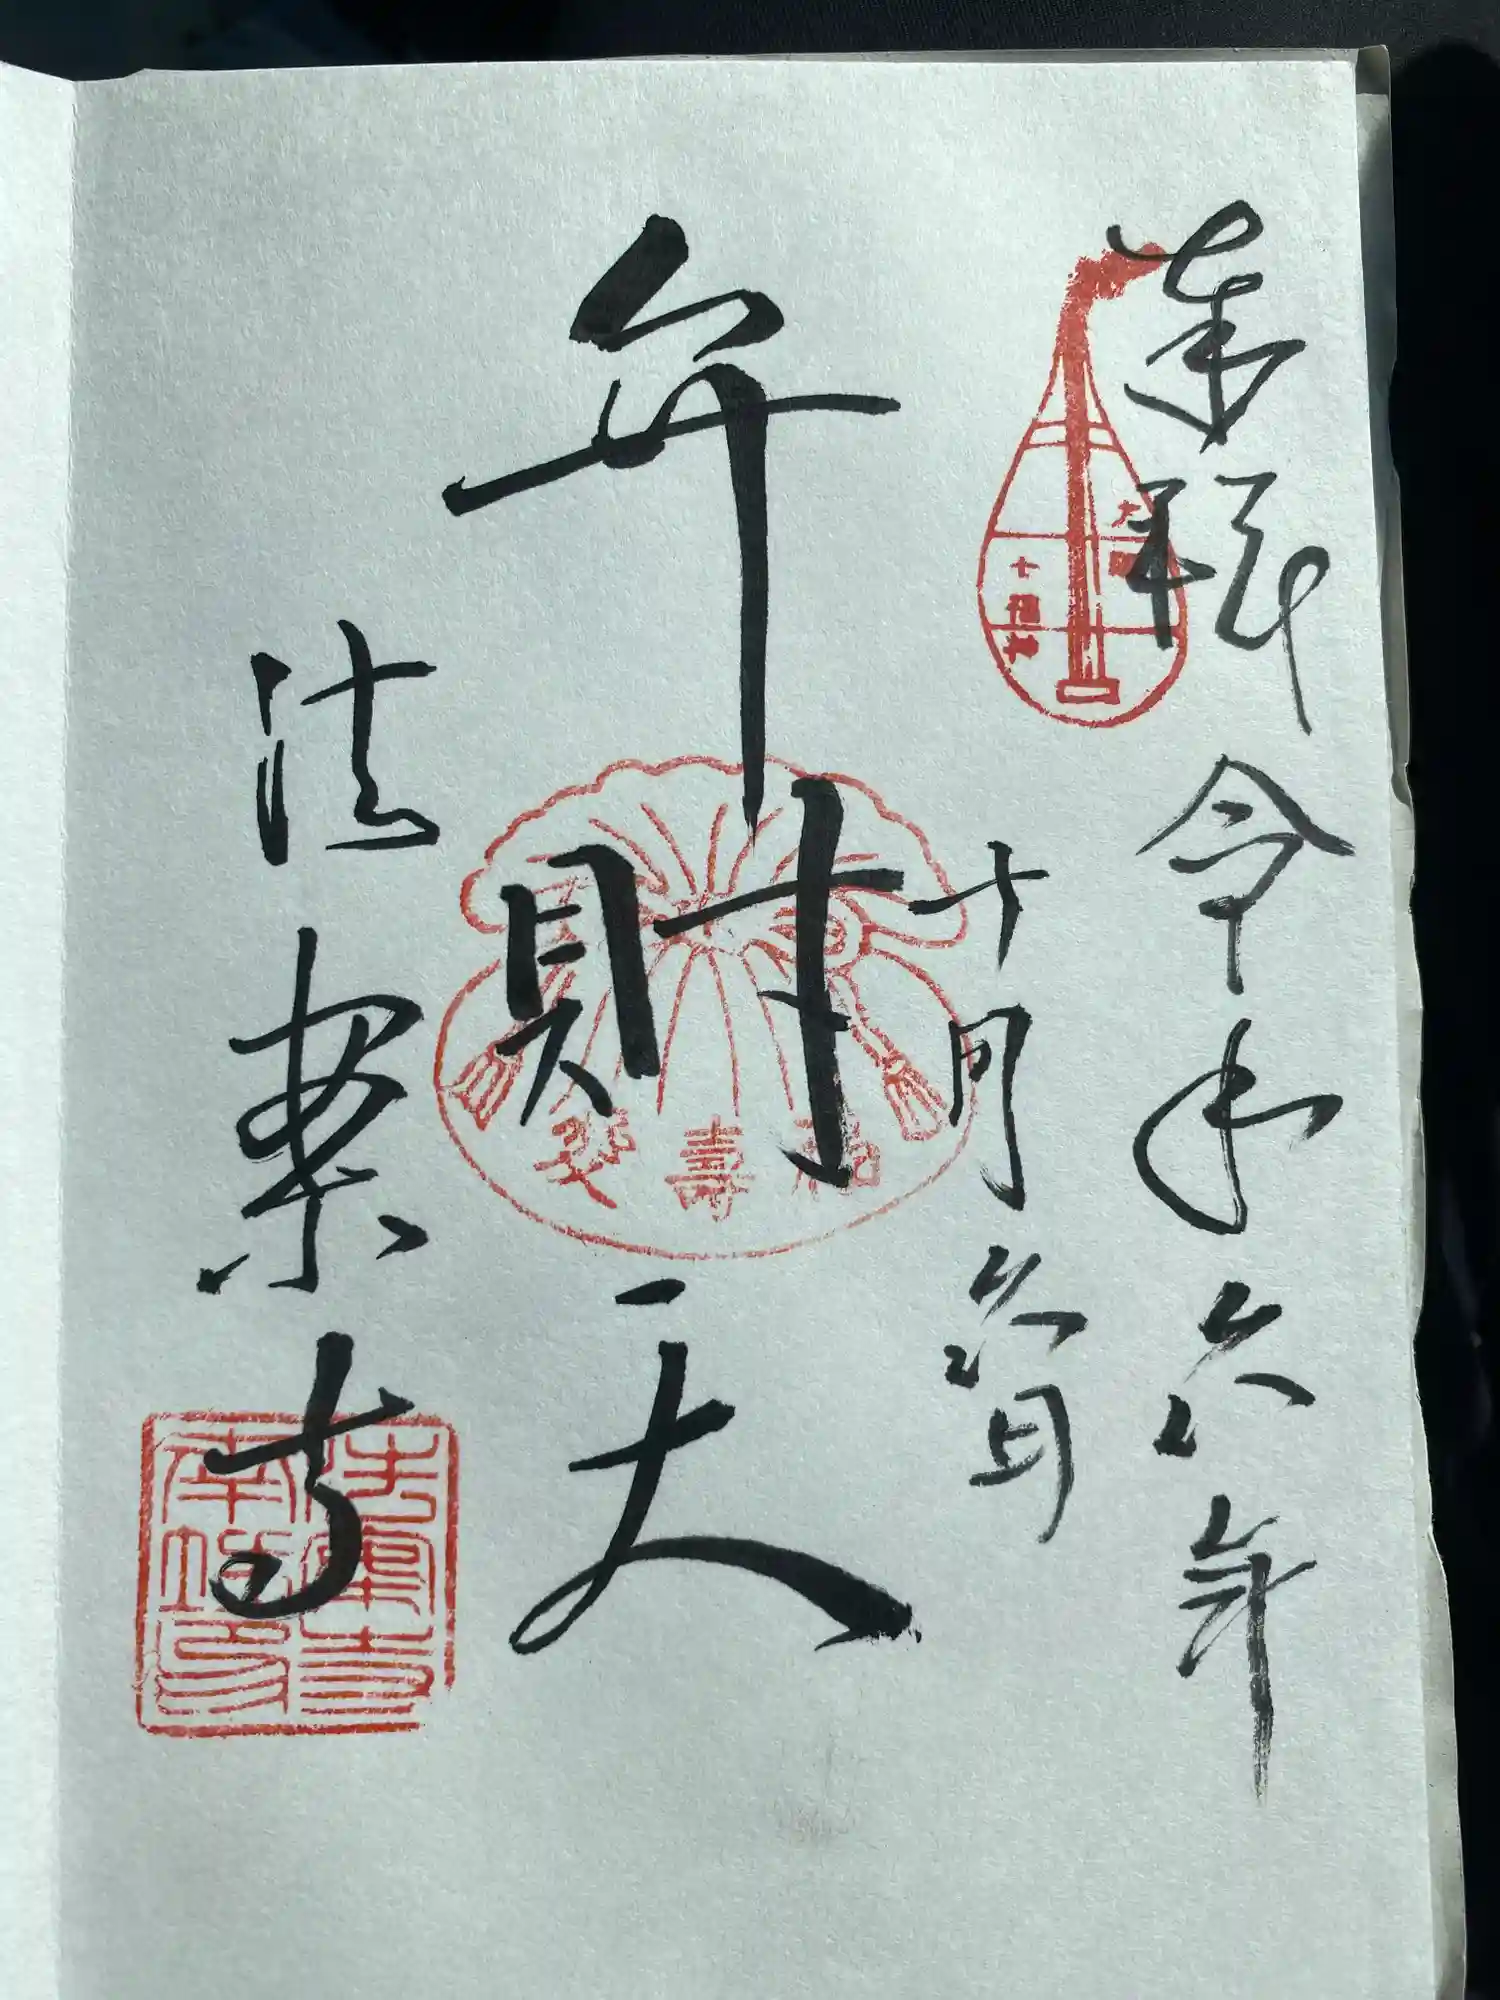 奉拝
令和六年
十月六日
弁財天
法楽寺
福壽